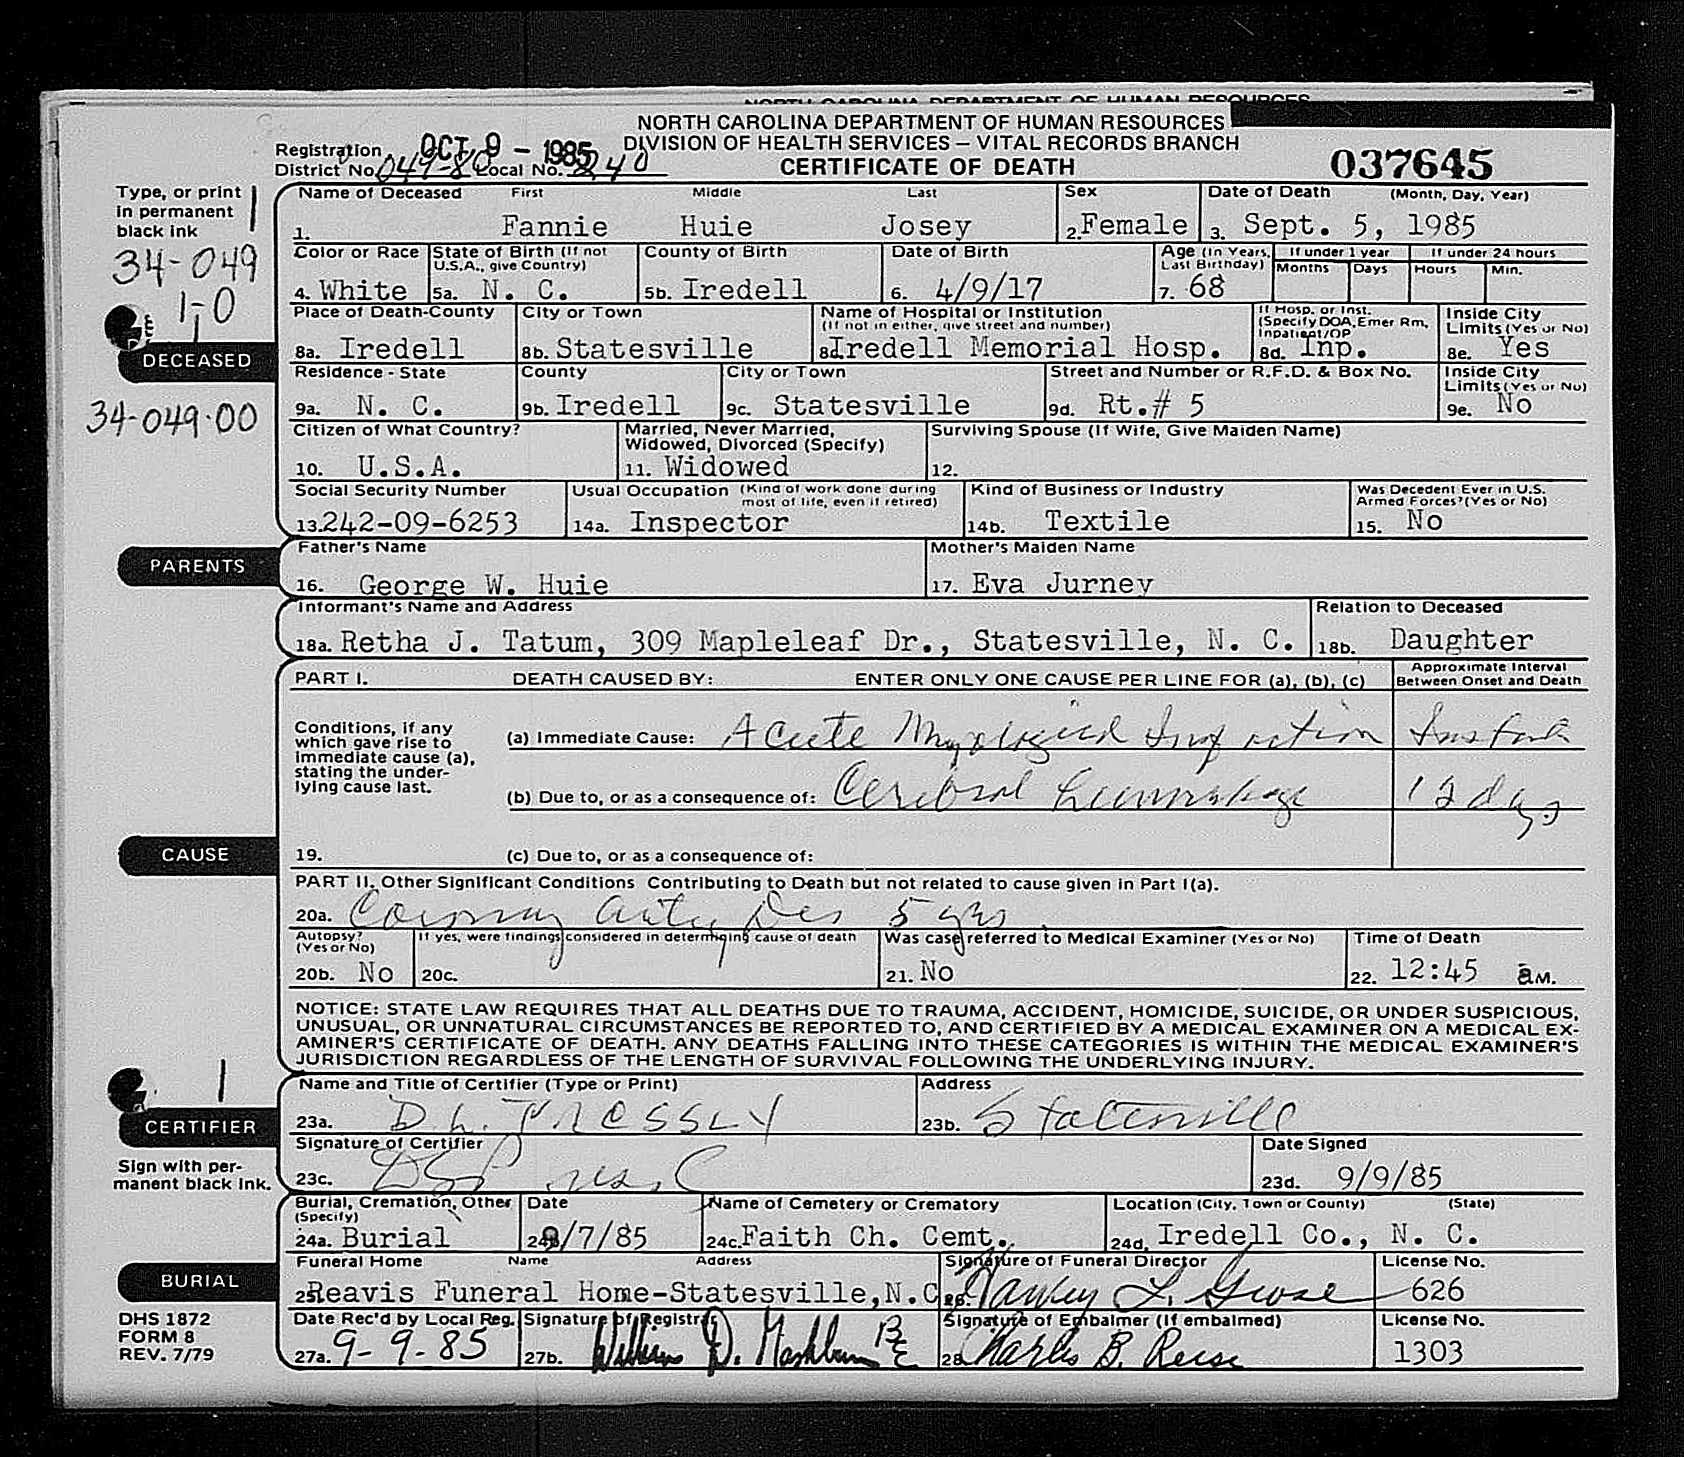 NORTH CAROLINA DEPARTMENT OF HUMAN RESOURCES
NORTH CAROLINA DEPARTMENT OF HUMAN RESOURCES
DIVISION OF HEALTH SERVICES – VITAL RECORDS BRANCH
CERTIFICATE OF DEATH
037645
Registration District No. 049-80 Local No. 240
OCT 9 – 1985
Type, or print in permanent black ink
34-049
1-0
DECEASED
34-049-00
Name of Deceased First Middle Last Sex Date of Death (Month, Day, Year)
1. Fannie Huie Josey 2. Female 3. Sept. 5, 1985
Color or Race State of Birth (If not U.S.A., give Country) County of Birth Date of Birth Age (In Years, Last Birthday) If under 1 year Months Days If under 24 hours Hours Min.
4. White 5a. N. C. 5b. Iredell 6. 4/9/17 7. 68
Place of Death-County City or Town Name of Hospital or Institution (If not in either, give street and number) If Hosp. or Inst. (Specify DOA, Emer Rm, Inpatient/OP Inside City Limits (Yes or No)
8a. Iredell 8b. Statesville 8c. Iredell Memorial Hosp. 8d. Inp. 8e. Yes
Residence - State County City or Town Street and Number or R.F.D. & Box No. Inside City Limits (Yes or No)
9a. N. C. 9b. Iredell 9c. Statesville 9d. Rt.# 5 9e. No
Citizen of What Country? Married, Never Married, Widowed, Divorced (Specify) Surviving Spouse (If Wife, Give Maiden Name)
10. U.S.A. 11. Widowed 12.
Social Security Number Usual Occupation (Kind of work done during most of life, even if retired) Kind of Business or Industry Was Decedent Ever in U.S. Armed Forces? (Yes or No)
13. 242-09-6253 14a. Inspector 14b. Textile 15. No
PARENTS
Father's Name Mother's Maiden Name
16. George W. Huie 17. Eva Jurney
Informant's Name and Address Relation to Deceased
18a. Retha J. Tatum, 309 Mapleleaf Dr., Statesville, N. C. 18b. Daughter
PART I. DEATH CAUSED BY: ENTER ONLY ONE CAUSE PER LINE FOR (a), (b), (c) Approximate Interval Between Onset and Death
Conditions, if any which gave rise to immediate cause (a), stating the underlying cause last.
(a) Immediate Cause: Acute
(b) Due to, or as a consequence of: Cerebral 12 days
CAUSE
19. (c) Due to, or as a consequence of:
PART II. Other Significant Conditions Contributing to Death but not related to cause given in Part I(a).
20a. Coronary Artery Dis 5 yrs
Autopsy? (Yes or No) If yes, were findings considered in determining cause of death Was case referred to Medical Examiner (Yes or No) Time of Death
20b. No 20c. 21. No 22. 12:45 a M.
NOTICE: STATE LAW REQUIRES THAT ALL DEATHS DUE TO TRAUMA, ACCIDENT, HOMICIDE, SUICIDE, OR UNDER SUSPICIOUS,
UNUSUAL, OR UNNATURAL CIRCUMSTANCES BE REPORTED TO, AND CERTIFIED BY A MEDICAL EXAMINER ON A MEDICAL EX-
AMINER'S CERTIFICATE OF DEATH. ANY DEATHS FALLING INTO THESE CATEGORIES IS WITHIN THE MEDICAL EXAMINER'S
JURISDICTION REGARDLESS OF THE LENGTH OF SURVIVAL FOLLOWING THE UNDERLYING INJURY.
1
CERTIFIER
Sign with permanent black ink.
Name and Title of Certifier (Type or Print) Address
23a. D. L. PRESSLY 23b. Statesville
Signature of Certifier Date Signed
23c. 23d. 9/9/85
Burial, Cremation, Other (Specify) Date Name of Cemetery or Crematory Location (City, Town or County) (State)
24a. Burial 24b. 9/7/85 24c. Faith Ch. Cemt. 24d. Iredell Co., N. C.
BURIAL
Funeral Home Name Address Signature of Funeral Director License No.
25. Reavis Funeral Home-Statesville, N.C. 26. 626
DHS 1872
FORM 8
REV. 7/79
Date Rec'd by Local Reg. Signature of Registrar Signature of Embalmer (If embalmed) License No.
27a. 9-9-85 27b. William D. Mashburn 28. Charles B. Reese 1303